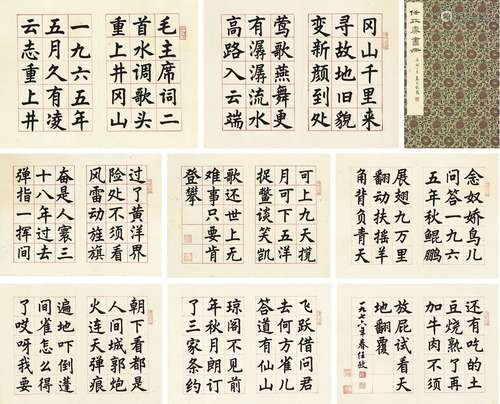 毛主席词二
首水调歌头
重上井冈山
一九六五年
五月久有凌
云志重上井
冈山千里来
寻故地旧貌
变新颜到处
莺歌燕舞更
有潺潺流水
高路入云端
过了黄洋界
险处不须看
风雷动旌旗
奋是人寰三
十八年过去
弹指一挥间
可上九天揽
月可下五洋
捉鳖谈笑凯
歌还世上无
难事只要肯
登攀
念奴娇鸟儿
问答一九六
五年秋鲲鹏
展翅九万里
翻动扶摇羊
角背负青天
朝下看都是
人间城郭炮
火连天弹痕
遍地吓倒蓬
间雀怎么得
了哎呀我要
飞跃借问君
去何方雀儿
答道有仙山
琼阁不见前
年秋月朗订
了三家条约
还有吃的土
豆烧熟了再
加牛肉不须
放屁试看天
地翻覆
一九七六年春任政